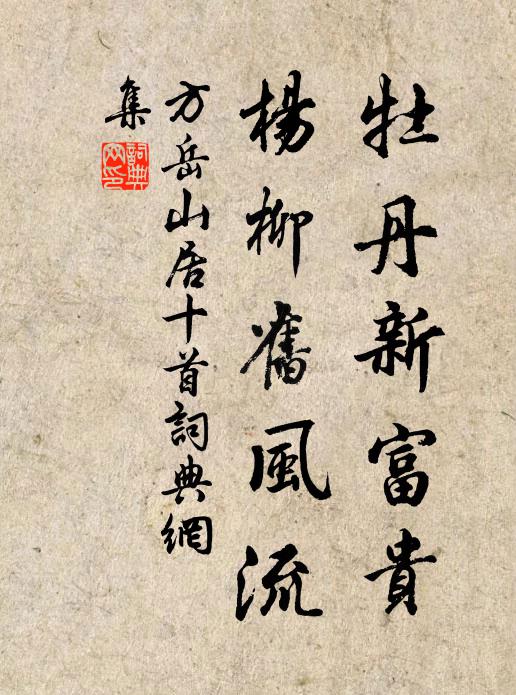 牡丹新富貴
楊柳舊風流
方岳山居十首詞典網
集
詞典
网印